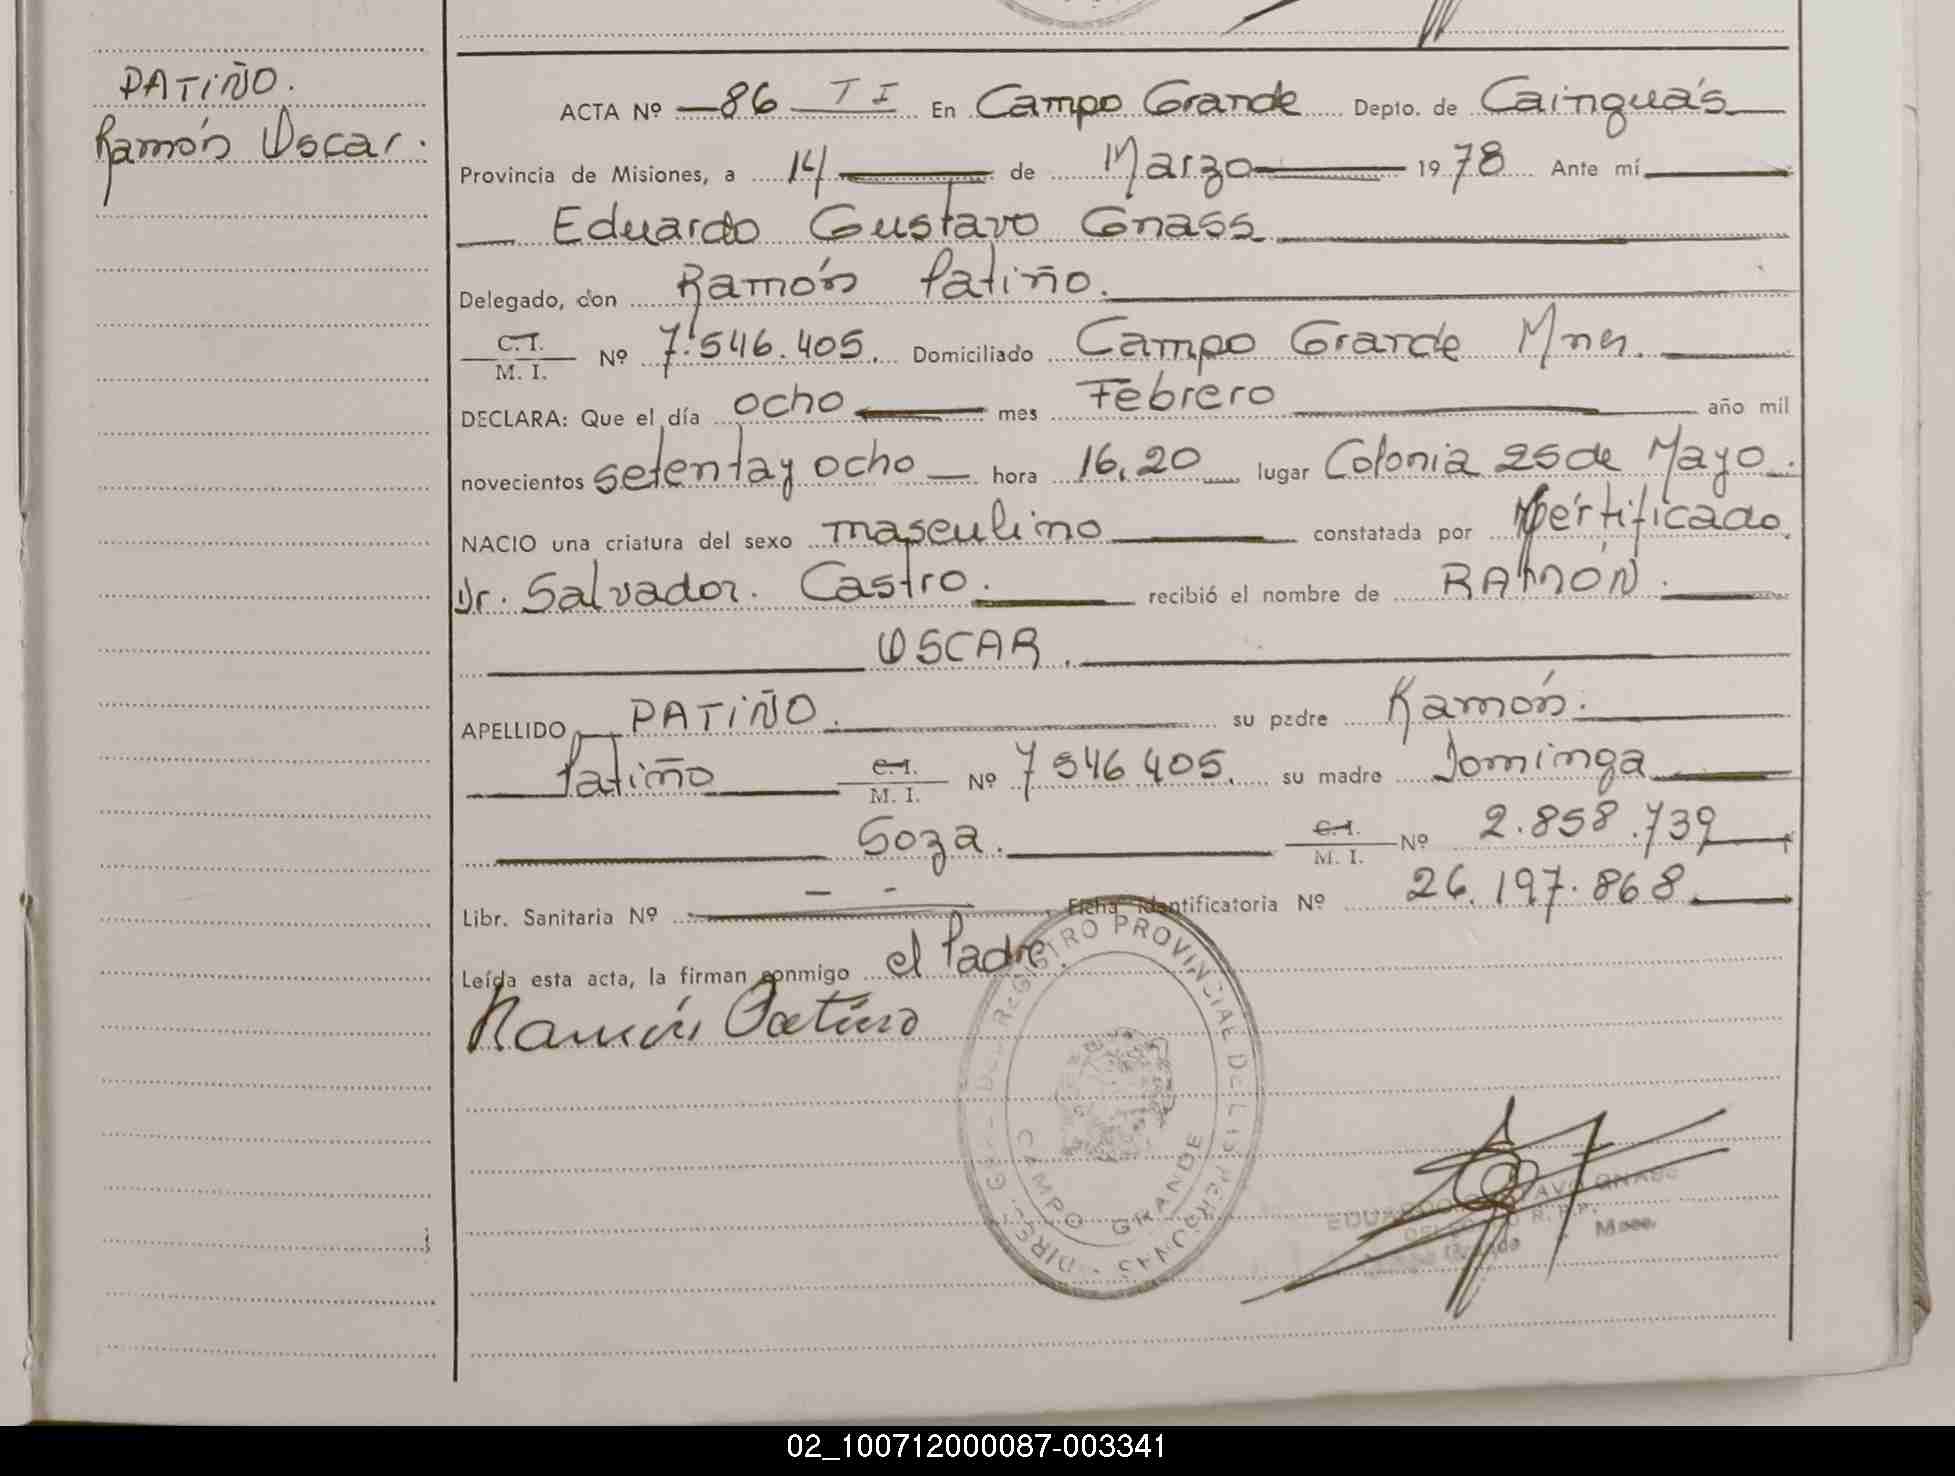 PATIÑO.
Ramón Oscar.
ACTA Nº 86 T I En Campo Grande Depto. de Cainguás
Provincia de Misiones, a 14 de Marzo 1978 Ante mí
Eduardo Gustavo Gnass
Delegado, con Ramón Patiño.
C.I. / M. I. Nº 7.546.405. Domiciliado Campo Grande Mnes.
DECLARA: Que el día ocho mes Febrero año mil
novecientos setentay ocho hora 16,20 lugar Colonia 25 de Mayo.
NACIO una criatura del sexo masculino constatada por Certificado
Dr. Salvador. Castro. recibió el nombre de RAMÓN.
OSCAR.
APELLIDO PATIÑO. su padre Ramón.
Patiño C.I. / M. I. Nº 7 546 405. su madre Dominga
Soza. C.I. / M. I. Nº 2.858.739
Libr. Sanitaria Nº — - Ficha Identificatoria Nº 26.197.868
Leída esta acta, la firman conmigo el Padre.
Ramón Patiño
REGISTRO PROVINCIAL DE LAS PERSONAS
CAMPO GRANDE
EDUARDO GUSTAVO GNASS
DELEGADO R.P.P.
Campo Grande Mnes.
02_100712000087-003341